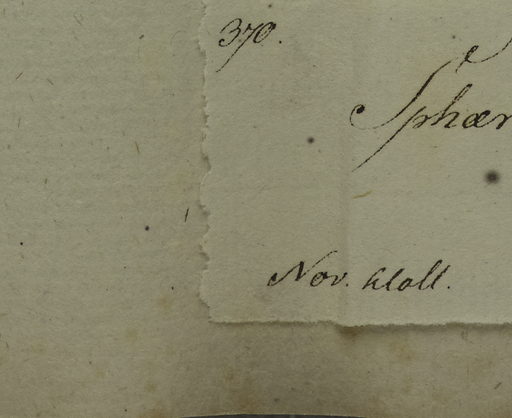 370.
Sphær
Nov. Kloll.